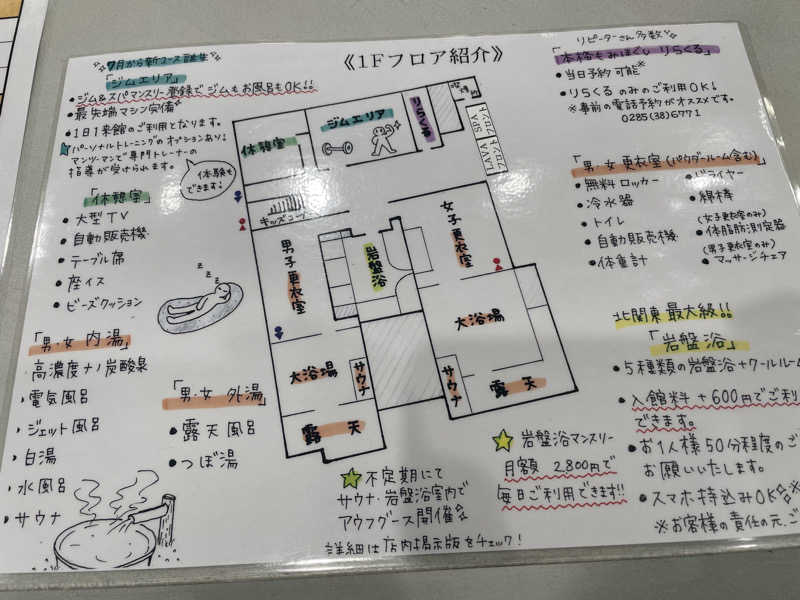 《1Fフロア紹介》
7月から新コース誕生
「ジムエリア」
・ジム&スパマンスリー登録で ジムもお風呂もOK!!
・最先端マシン完備
・1日1来館のご利用となります。
☆パーソナルトレーニングのオプションあり!
マンツーマンで専門トレーナーの
指導が受けられます。
体験も
できます!
「休憩室」
・大型TV
・自動販売機
・テーブル席
・座イス
・ビーズクッション
「男・女 内湯」
・高濃度ナノ炭酸泉
・電気風呂
・ジェット風呂
・白湯
・水風呂
・サウナ
「男・女 外湯」
・露天風呂
・つぼ湯
休憩室
ジムエリア
りらくる
LAVA SPA
フロントフロント
キッズコーナー
男子更衣室
岩盤浴
女子更衣室
大浴場
サウナ
露天
大浴場
サウナ
露天
リピーターさん多数
「本格もみほぐし りらくる」
・当日予約可能※
・りらくる のみのご利用OK!
※事前の電話予約がオススメです。
0285(38)6771
「男・女 更衣室 (パウダールーム含む)」
・無料ロッカー
・冷水器
・トイレ
・自動販売機
・体重計
・ドライヤー
・綿棒
(女子更衣室のみ)
・体脂肪測定器
(男子更衣室のみ)
・マッサージチェア
北関東最大級!!
「岩盤浴」
・5種類の岩盤浴+クールルーム
・入館料+600円でご利
できます。
・お1人様50分程度のご
お願いいたします。
・スマホ持込みOK
※お客様の責任の元、ご
☆岩盤浴マンスリー
月額 2,800円で
毎日ご利用できます!!
☆不定期にて
サウナ・岩盤浴室内で
アウフグース開催
詳細は店内掲示版をチェック!